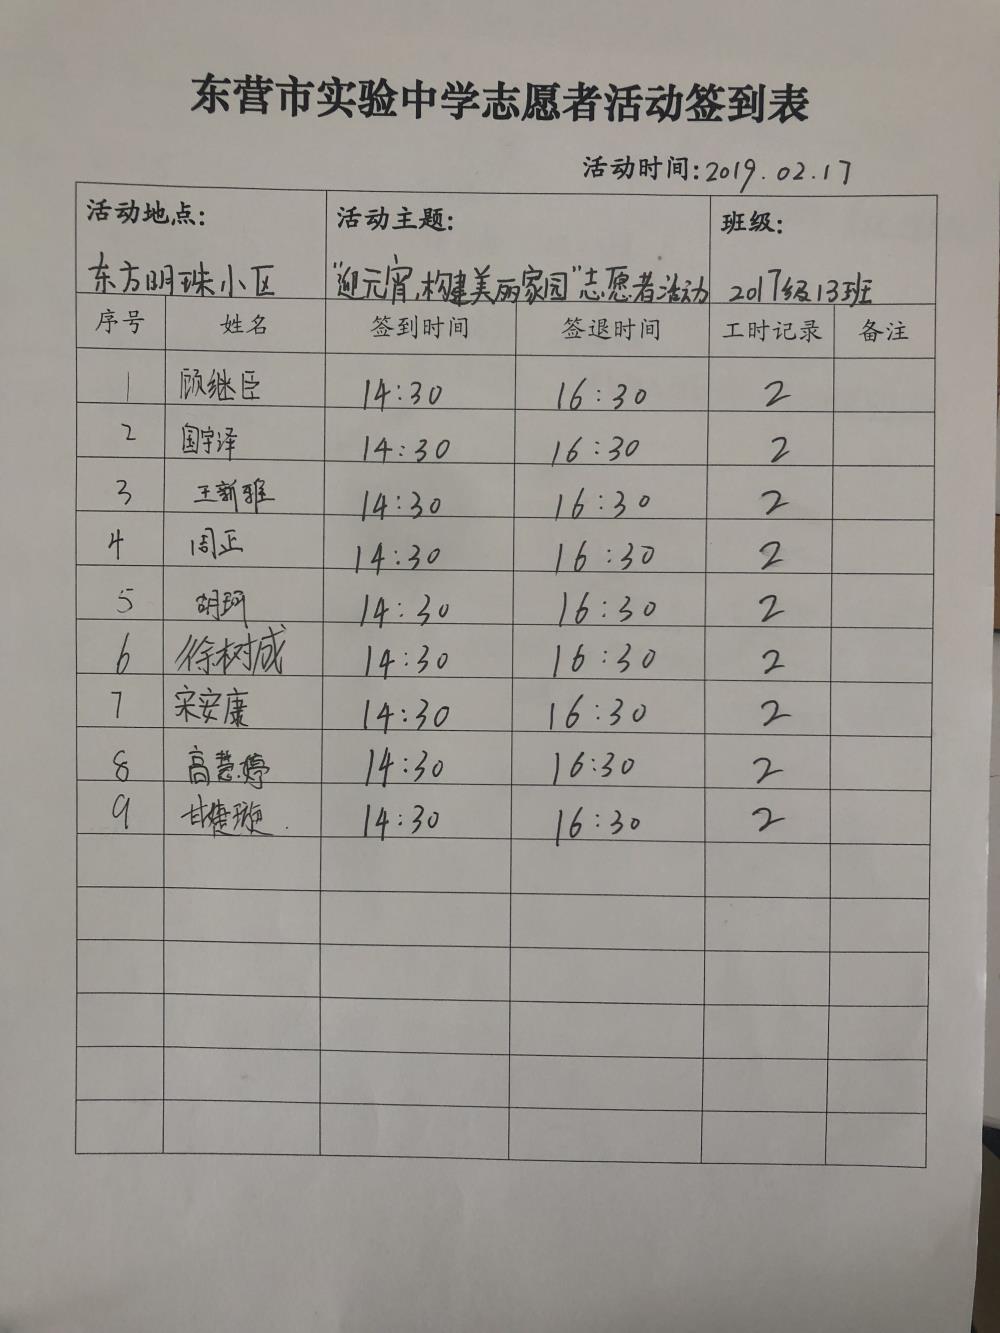 东营市实验中学志愿者活动签到表
活动时间:2019.02.17
活动地点: 活动主题: 班级:
东方明珠小区 "迎元宵,构建美丽家园"志愿者活动 2017级13班
序号 姓名 签到时间 签退时间 工时记录 备注
1 顾继臣 14:30 16:30 2
2 国宇泽 14:30 16:30 2
3 王新雅 14:30 16:30 2
4 周正 14:30 16:30 2
5 胡珂 14:30 16:30 2
6 徐树成 14:30 16:30 2
7 宋安康 14:30 16:30 2
8 高慧婷 14:30 16:30 2
9 14:30 16:30 2